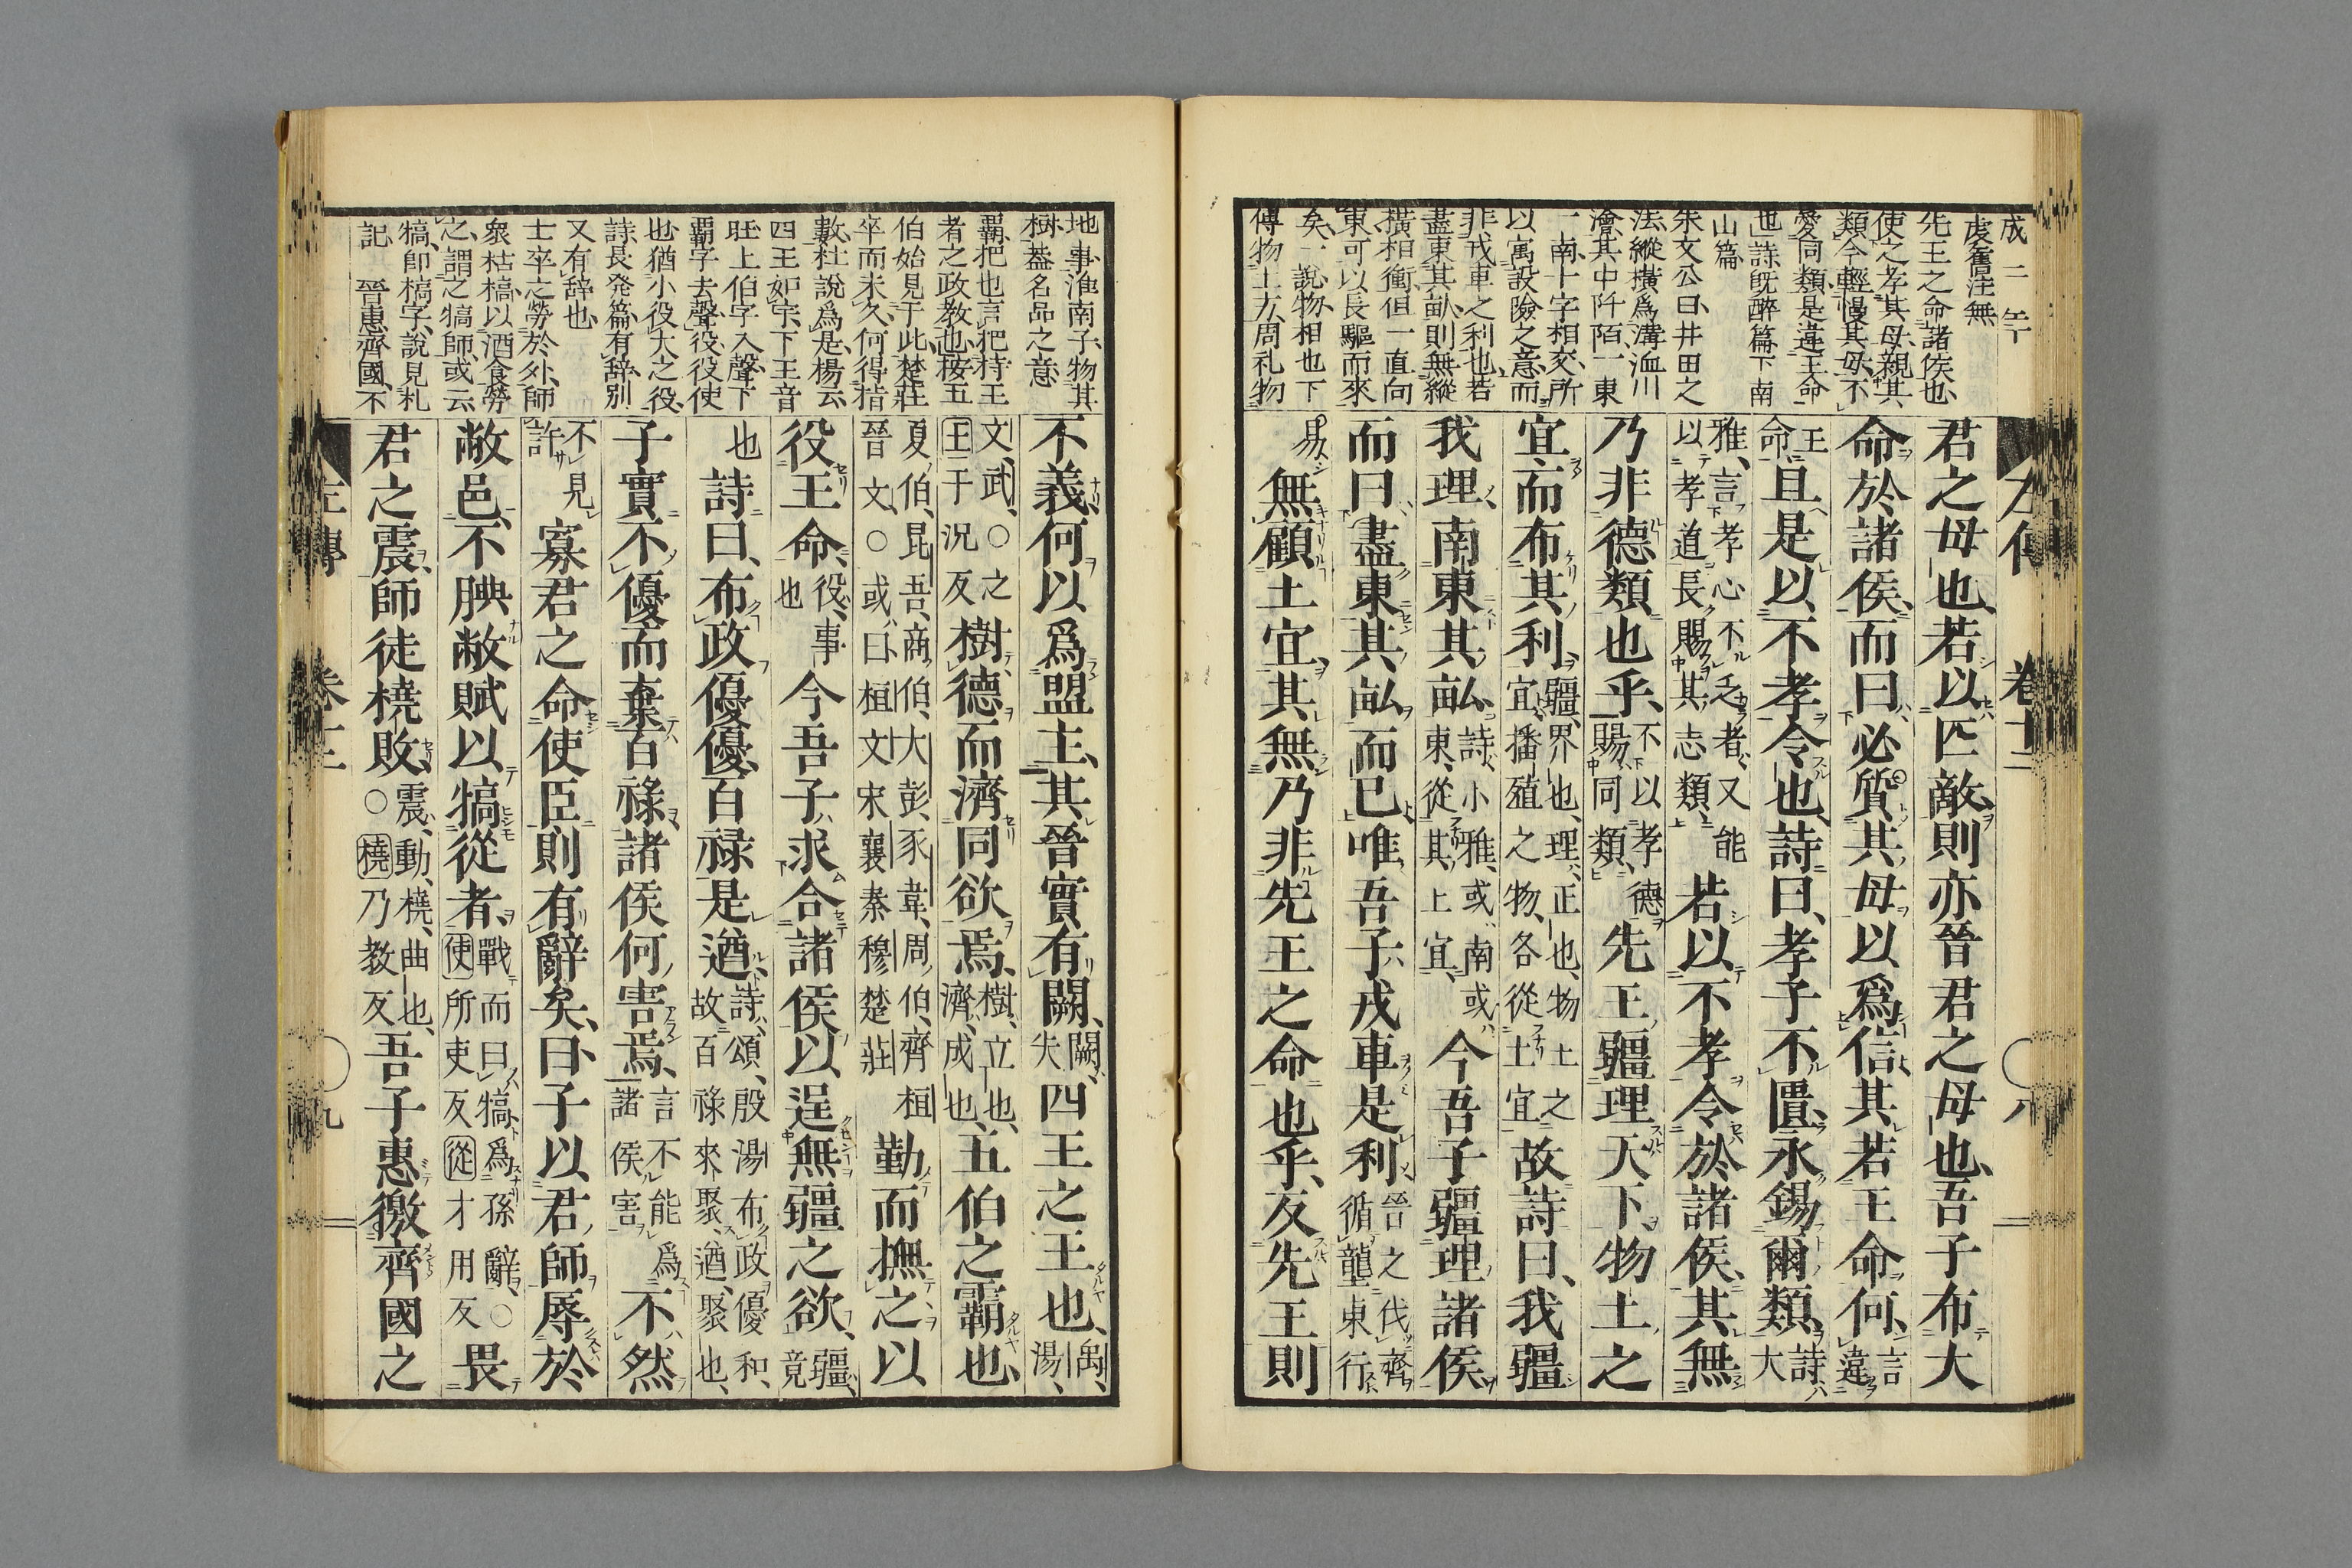 成二年
虔舊注無
先王之命諸侯也、
使之孝其母、親其
類、今輕慢其母、不
愛同類、是違王命
也、詩既醉篇下南
山篇
朱文公曰、井田之
法、縱橫爲溝洫川
澮、其中阡陌、一東
一南、十字相交、所
以寓設險之意、而
非戎車之利也、若
盡東其畝、則無縱
橫相衝、但一直向
東、可以長驅而來
矣、一說、物、相也、下
傳物土方、周礼物
左傳 卷十二 八
君之母也、若以匹敵、則亦晉君之母也、吾子布大
命於諸侯、而曰、必質其母以爲信、其若王命何、言違
王命、且是以不孝令也、詩曰、孝子不匱、永錫爾類、詩大
雅、言孝心不乏者、又能以孝道長賜其志類、若以不孝令於諸侯、其無
乃非德類也乎、不以孝德賜同類、先王疆理天下、物土之
宜、而布其利、疆、界也、理、正也、物土之宜、播殖之物、各從土宜、故詩曰、我疆
我理、南東其畝、詩、小雅、或南或東、從其土宜、今吾子疆理諸侯
而曰、盡東其畝而已、唯吾子戎車是利、晉之伐齊循壟東行
易、無顧土宜、其無乃非先王之命也乎、反先王則
地事淮南子、物其
樹、葢名品之意
覇、把也、言把持王
者之政教也、按五
伯始見于此、楚莊
卒而未久、何得指
數、杜說爲是、楊云、
四王如字、下王音
旺、上伯字入聲、下
覇字去聲、役、役使
也、猶小役大之役、
詩長発篇、有辞、別
又有辞也、
士卒之勞於外、師
衆枯槁、以酒食勞
之、謂之犒師、或云、
犒、卽槁字、說見札
記 晉惠齊國、不
不義、何以爲盟主、其晉實有闕、闕、失、四王之王也、禹、湯、
文、武、○王于況反之樹德而濟同欲焉、樹、立也、濟、成也、五伯之霸也、
夏伯昆吾、商伯大彭、豕韋、周伯齊桓、晉文、○或曰、桓文宋襄秦穆楚莊勤而撫之、以
役王命、役、事也今吾子求合諸侯、以逞無疆之欲、疆、竟
也詩曰、布政優優、百祿是遒、詩頌、殷湯布政優和、故百祿來聚、遒、聚也、
子實不優、而棄百祿、諸侯何害焉、言不能爲諸侯害不然
不見許寡君之命使臣則有辭矣、曰、子以君師辱於
敝邑、不腆敝賦、以犒從者、戰而曰犒、爲孫辭、○使所吏反從才用反畏
君之震、師徒橈敗、震、動、橈、曲也、○橈乃教反吾子惠徼齊國之
左傳 卷十二 九